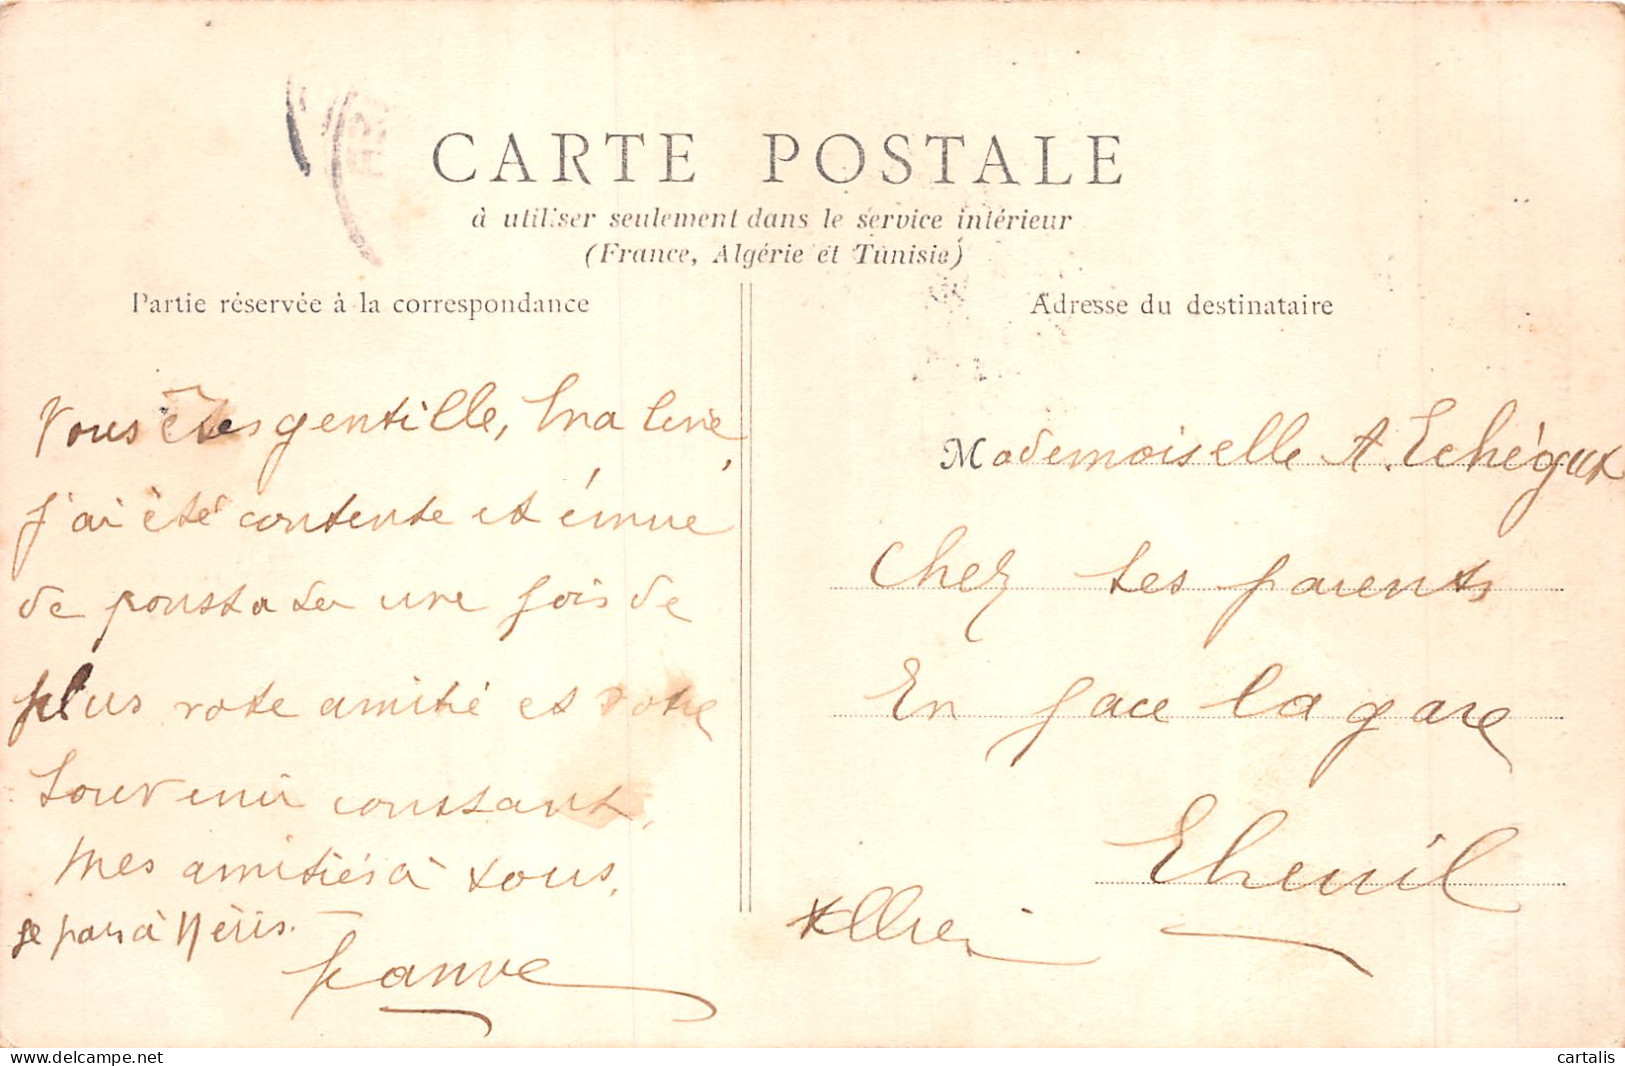 CARTE POSTALE
à utiliser seulement dans le service intérieur
(France, Algérie et Tunisie)
Partie réservée à la correspondance
Vous êtes gentille, ma
j'ai été contente et émue
de une fois de
plus votre amitié et votre
souvenir constant.
Mes amitiés à tous.
Je pars à Néris.
Jeanne
Adresse du destinataire
Mademoiselle A.
Chez ses parents
En face la gare
Allier
cartalis